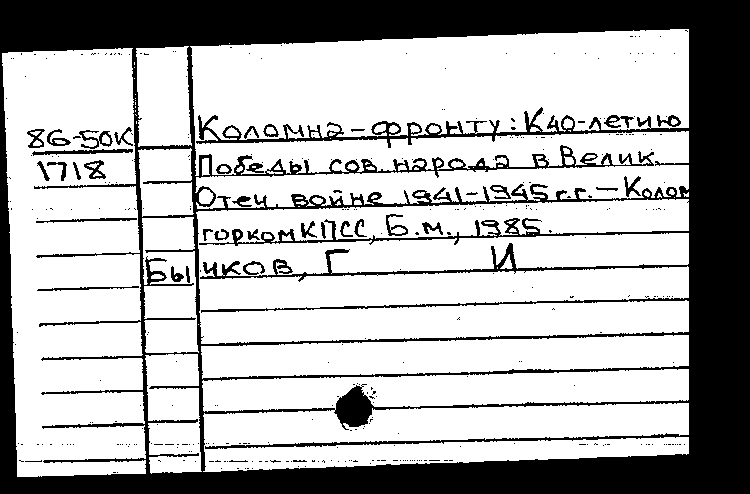 86-50К Коломна-фронту: К 40-летию
1718 Победы сов. народа в Велик.
Отеч. войне 1941-1945 г.г. – Колом
горком КПСС, Б.м., 1985.
Бычков, Г И